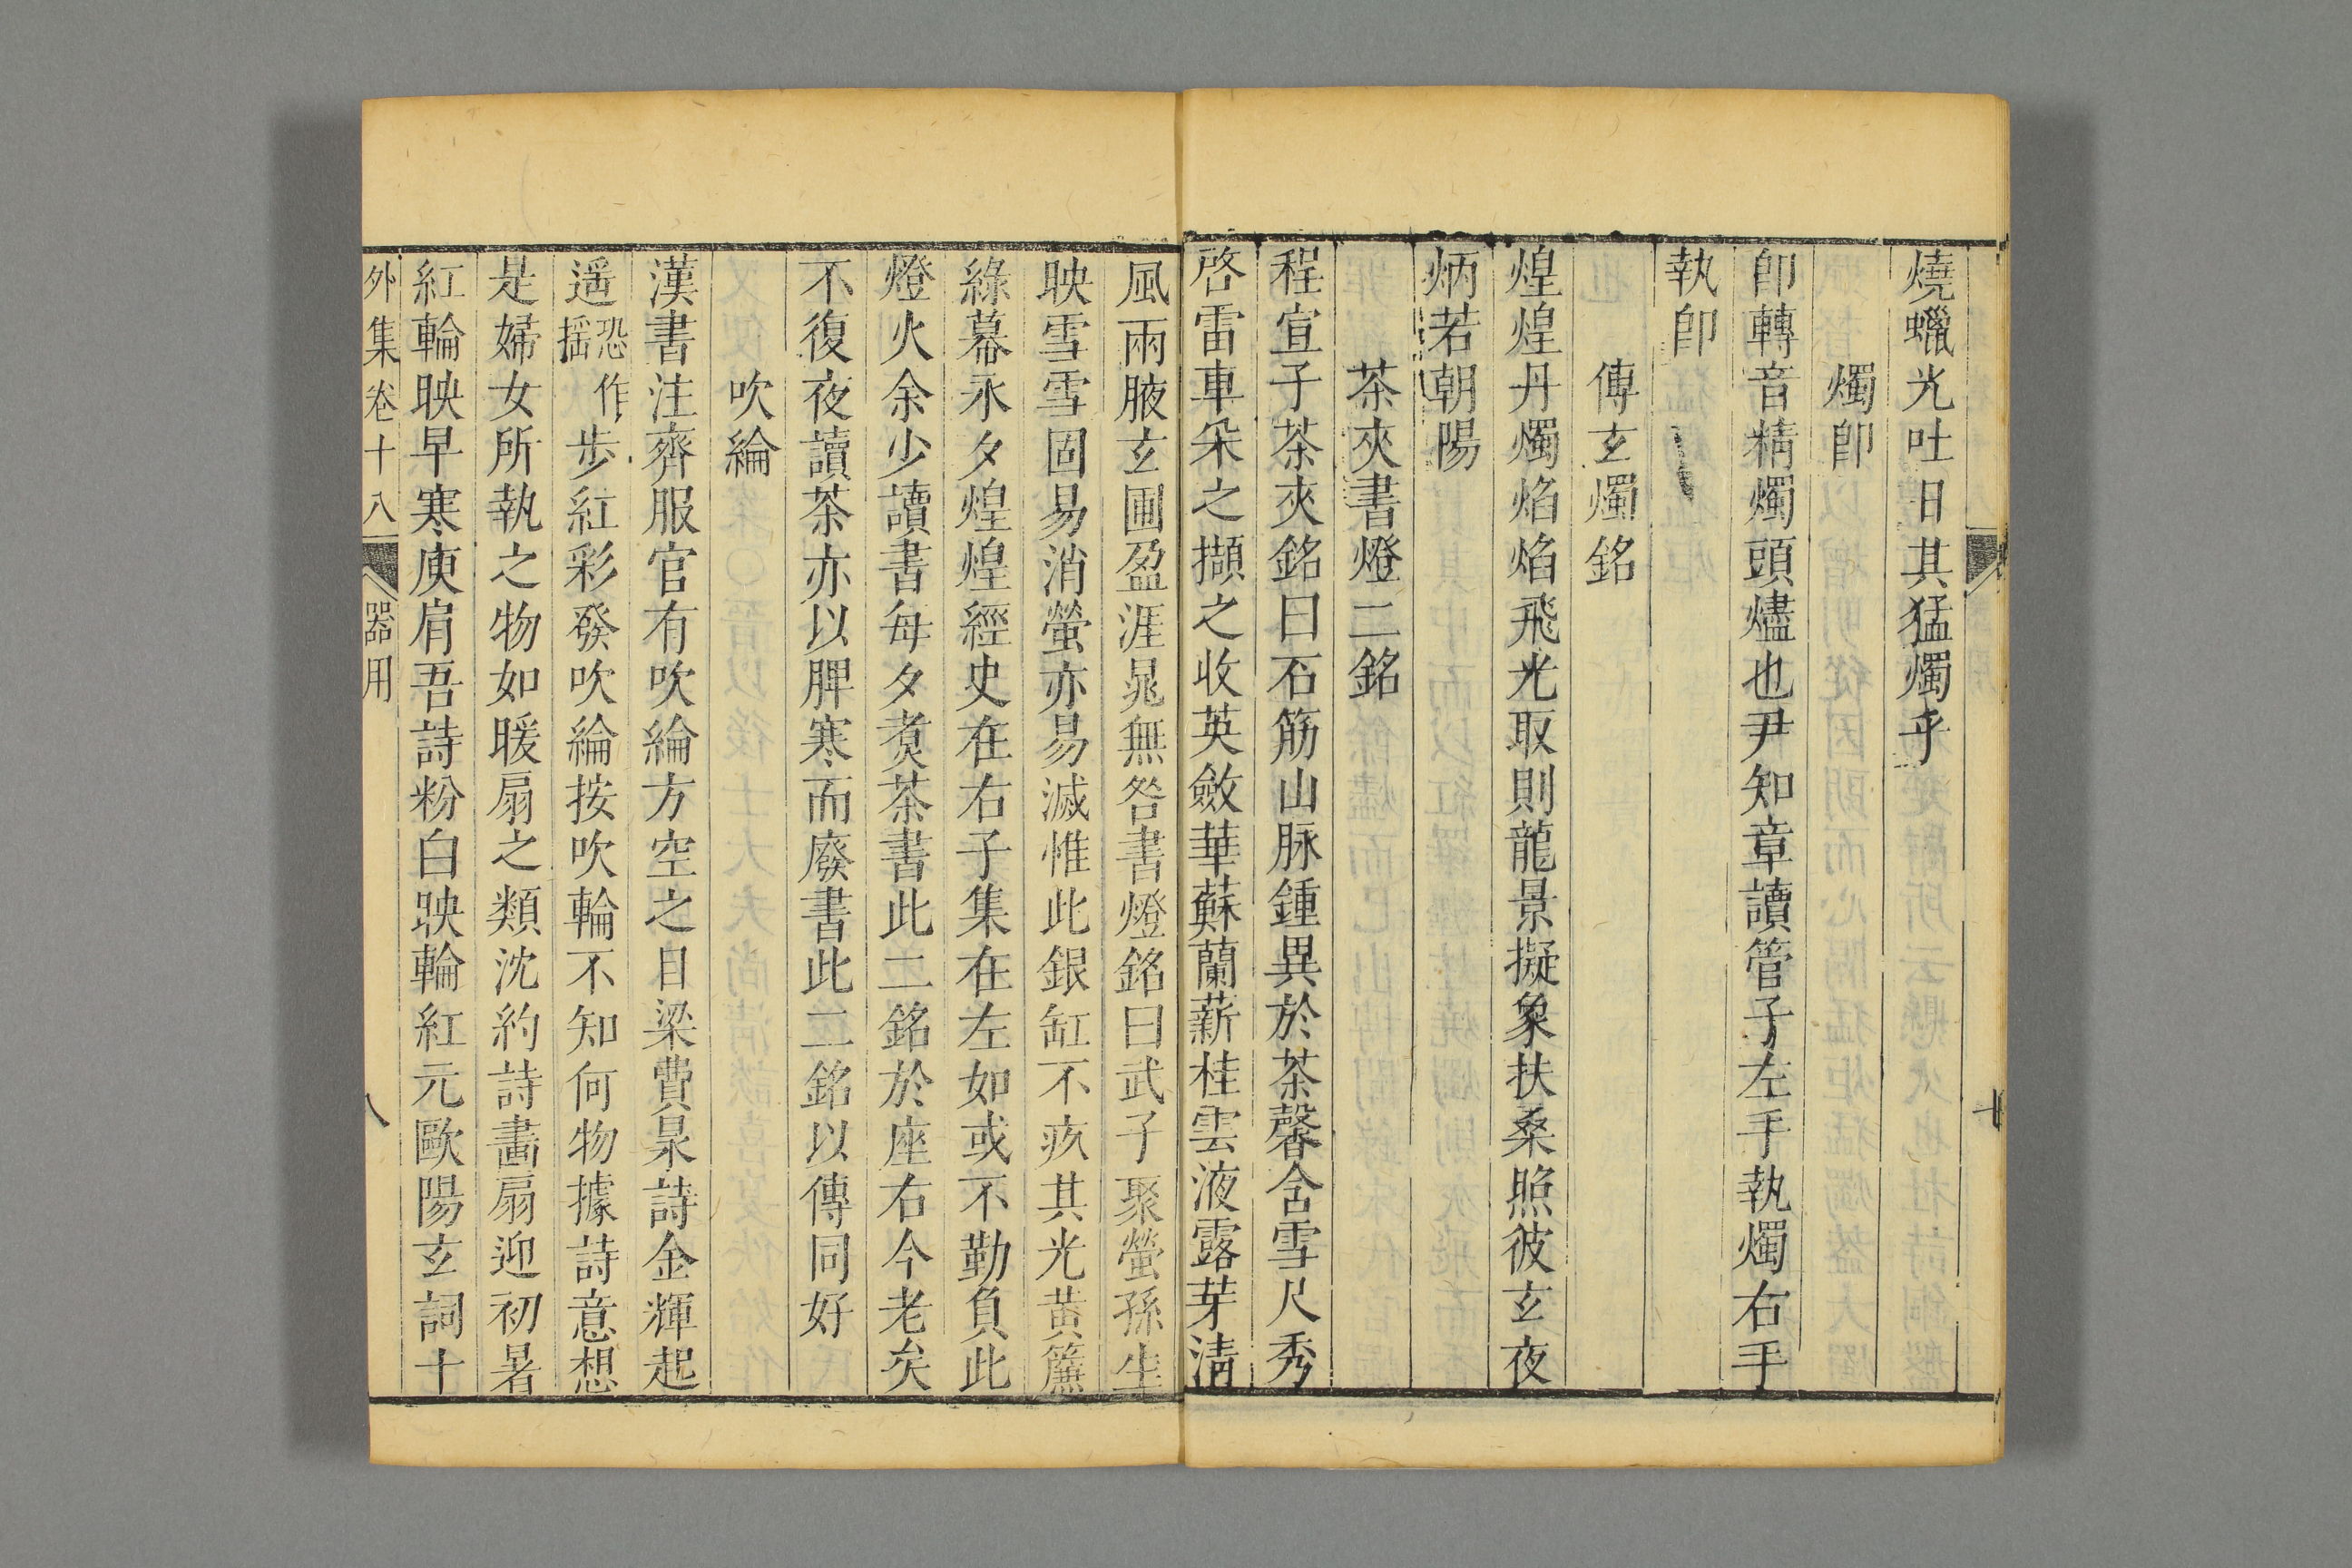 燒蠟光吐日其猛燭乎
燭卽
卽轉音精燭頭燼也尹知章讀管子左手執燭右手
執卽
傅玄燭銘
煌煌丹燭焰焰飛光取則龍景擬象扶桑照彼玄夜
炳若朝陽
茶夾書燈二銘
程宣子茶夾銘曰石筋山脉鍾異於茶馨含雪尺秀
啓雷車朵之擷之收英斂華蘇蘭薪桂雲液露芽淸
風兩腋玄圃盈涯晁無咎書燈銘曰武子聚螢孫生
映雪雪固易消螢亦易滅惟此銀缸不疚其光黃簾
綠幕永夕煌煌經史在右子集在左如或不勤負此
燈火余少讀書每夕煑茶書此二銘於座右今老矣
不復夜讀茶亦以脾寒而廢書此二銘以傳同好
吹綸
漢書注齊服官有吹綸方空之目梁費杲詩金輝起
遥恐作摇步紅彩發吹綸按吹輪不知何物據詩意想
是婦女所執之物如暖扇之類沈約詩畵扇迎初暑
紅輪映早寒庾肩吾詩粉白映輪紅元歐陽玄詞十
外集卷十八 器用 八